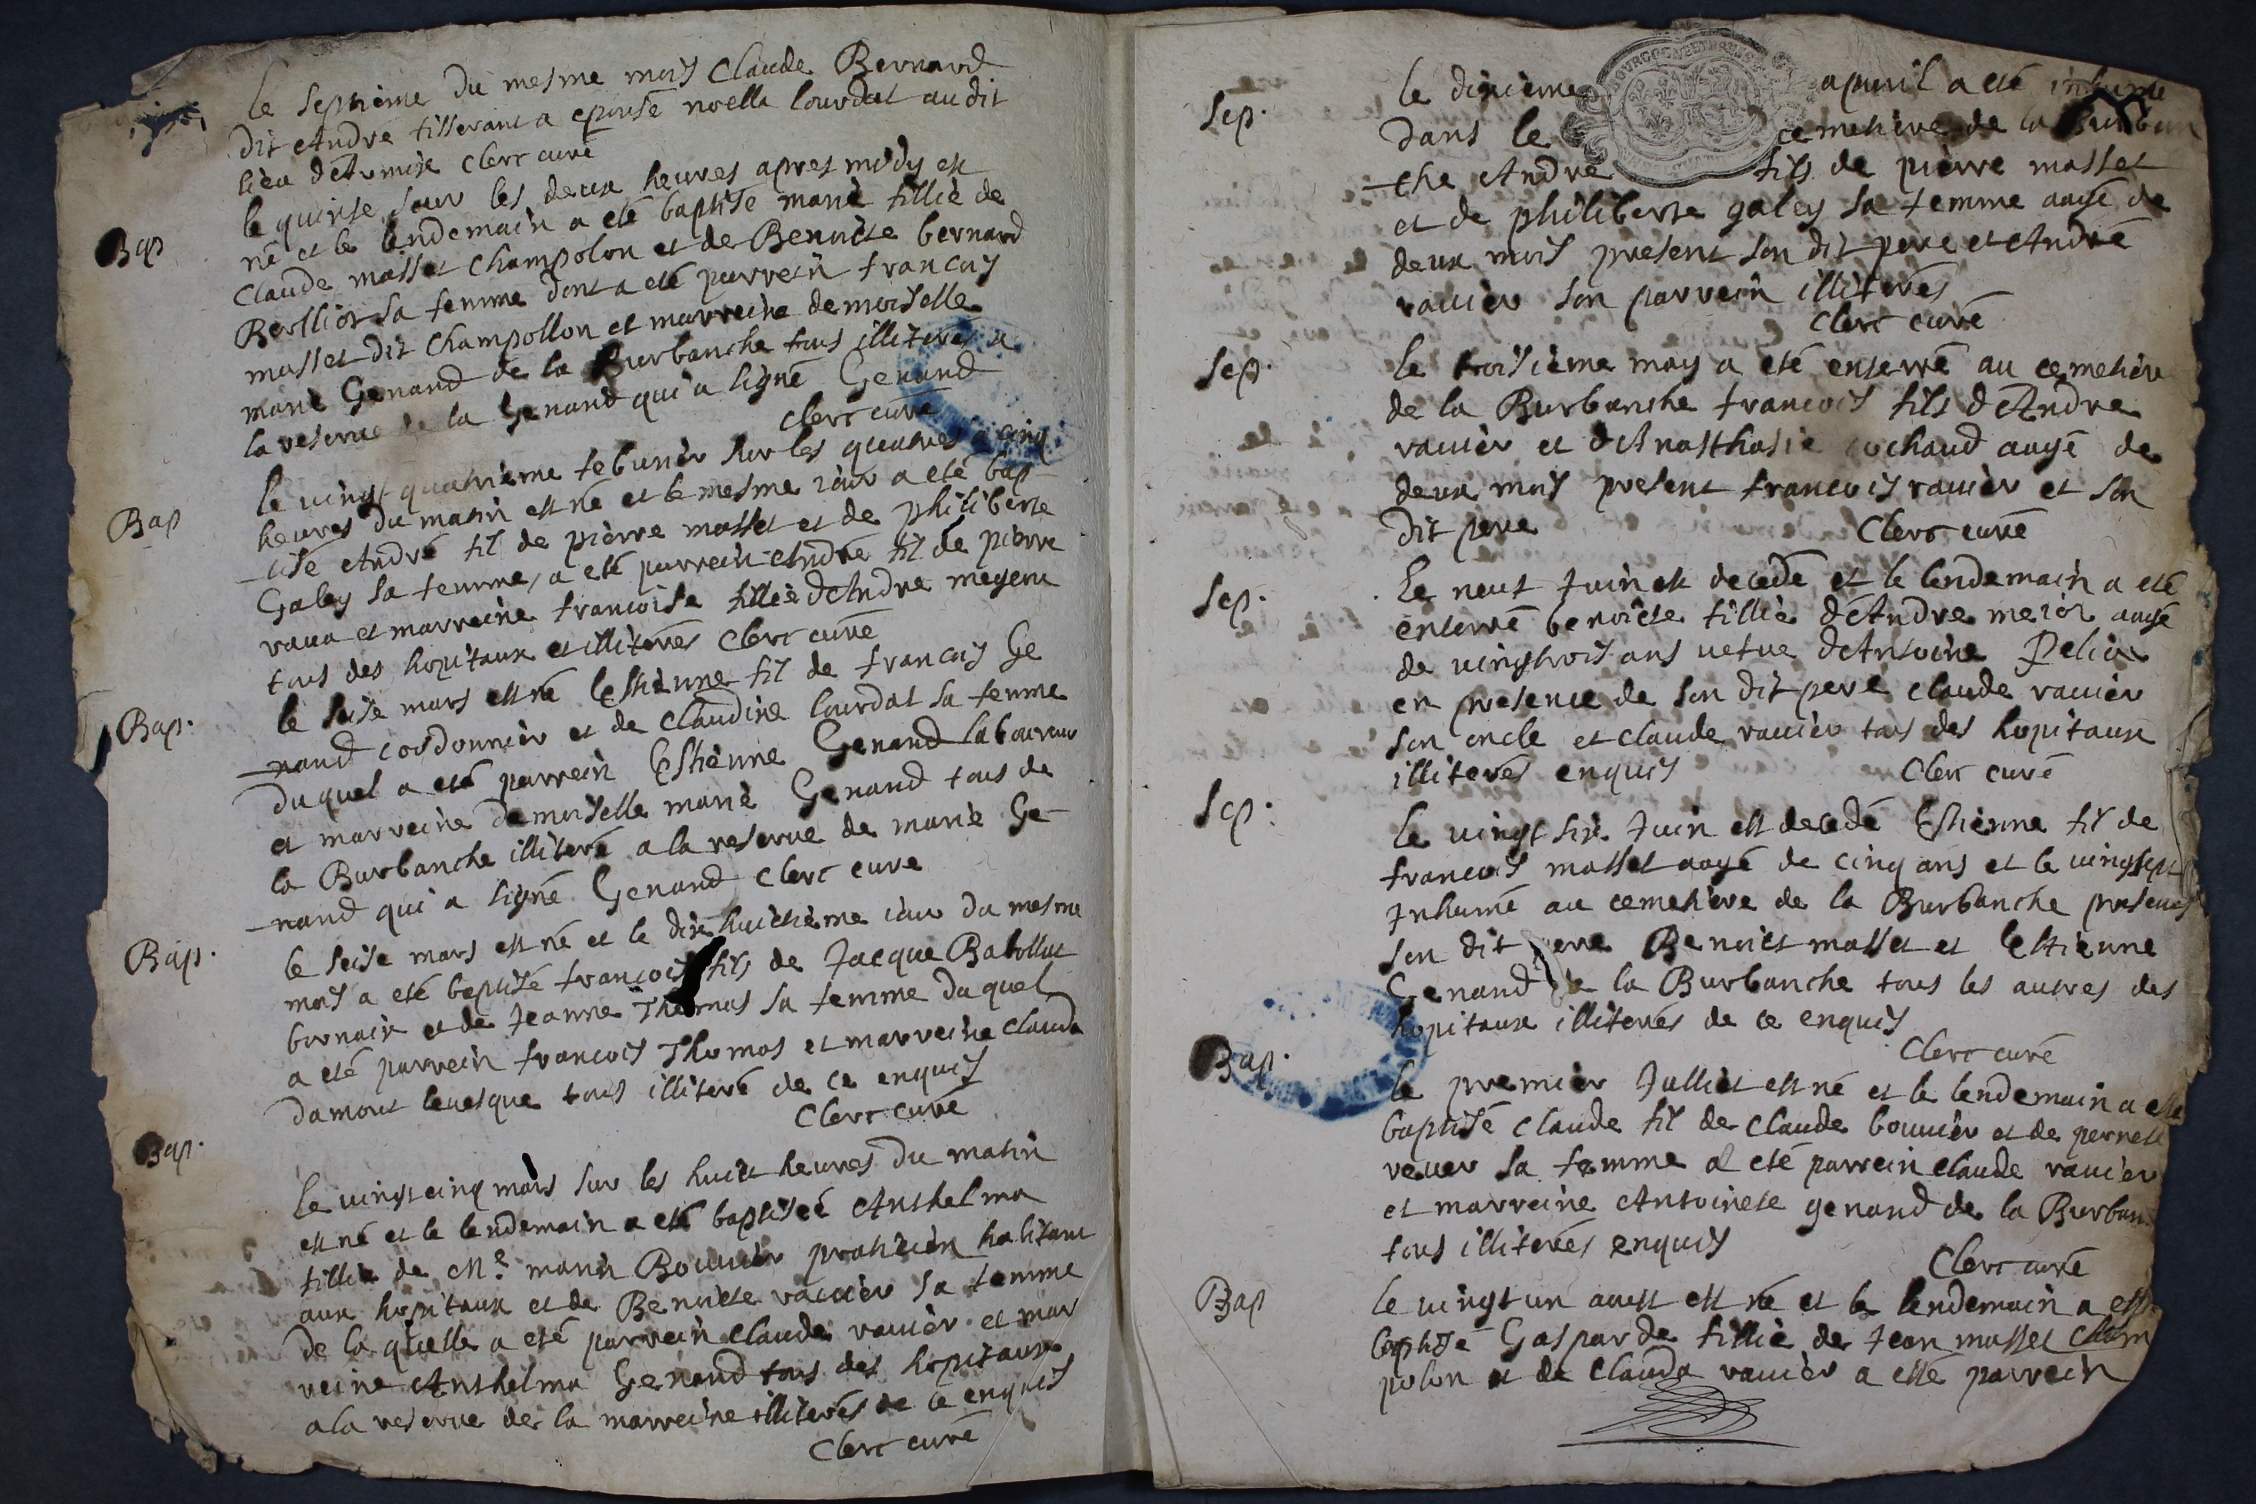 le septieme du mesme mois Claude Bernard
dit André tisserant a epousé noella lourdat audit
lieu clerc curé
Bap
le quinse sur les deux heures apres midy est
né et le lendemain a eté baptisé marie fillie de
Claude masset Champolon et de Benoite bernard
Berllior sa femme dont a eté parrein francois
masset dit Champollon et marreine demoiselle
marie Genand de la Burbanche tous illiterés a
la reserve de la Genand qui a signé Genand
Clerc curé
Bap
le vingt quatrieme febvrier sur les quatres a cinq
heures du matin est né et le mesme iour a eté bap
tisé André fil de pierre masset et de philiberte
Galey sa femme, a eté parrein André fil de pierre
rava et marreine francoise fillie dAndre megent
tous des hopitaux et illiterés Clerc curé
Bap.
le seise mars est né Estienne fil de francois Ge
nand cordonnier et de Claudine lourdat sa femme
duquel a eté parrein Estienne Genand laboureur
et marreine demoiselle marie Genand tous de
la Burbanche illiteré a la reserve de marie Ge-
nand qui a signé Genand Clerc cure
Bap.
le seise mars est né et le dix huictieme iour du mesme
mois a eté baptisé francois fils de Jacque Babolliat
et de Jeanne Thomas sa femme duquel
a eté parrein francois Thomas et marreine Clauda
damour levesque tous illiteré de ce enquis
Clerc curé
Bap.
le vingt cinq mars sur les huict heures du matin
est né et le lendemain a eté baptiseé Anthelma
fillie de Mr marin Bouvier praticien habitant
aux hopitaux et de Benoite ravier sa femme
de la quelle a eté parrein Claude ravier et mar
reine Anthelma Genand tous des hopitaux
a la reserve de la marreine illiterés de ce enquis
Clerc curé
Sep.
le dixieme apvril a eté inhumé
dans le cemetiere de la Burban
che André fils de pierre masset
et de philiberte galey sa femme aagé de
deux mois present son dit pere et André
ravier son parrein illiterés
Clerc curé
Sep.
le troisieme may a eté enterré au cemetiere
de la Burbanche francois fils dAndre
ravier et dAnasthasie cochaud aagé de
deux mois present francois ravier et son
dit pere Clerc curé
Sep.
Le neuf Juin est decedé et le lendemain a eté
enterré benoicte fillie dAndre aagé
de vingtrois ans vefve dAntoine
en presence de son dit pere claude ravier
son oncle et claude ravier tous des hopitaux
illiterés enquis Clerc curé
Sep.
Le vingt six Juin est decedé Estienne fil de
francois masset aagé de cinq ans et le vingtsept
Inhumé au cemetiere de la Burbanche presents
son dit pere Benoict masset et Estienne
Genand de la Burbanche tous les autres des
hopitaux illiterés de ce enquis
Clerc curé
Bap.
le premier Julliet est né et le lendemain a esté
baptisé Claude fil de Claude bouvier et de pernete
rever sa femme a eté parrein claude ravier
et marreine Antoinete genand de la Burban
tous illiterés enquis
Clerc curé
Bap
le vingt un aust est né et le lendemain a esté
baptisé Gasparde fillie de Jean masset Cham
polon et de Clauda ravier a esté parrein